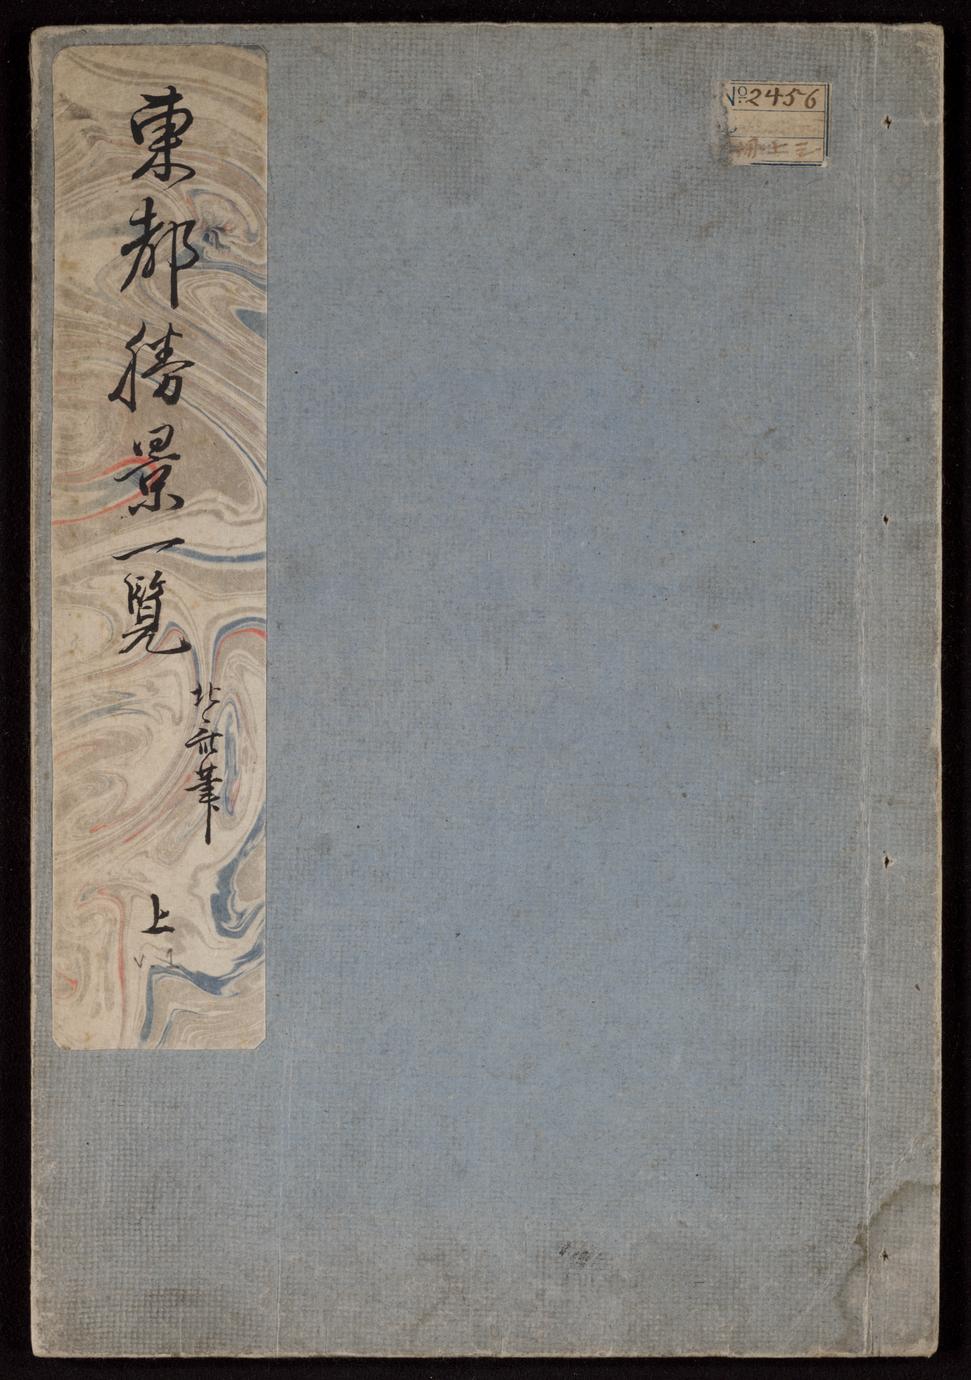 東都勝景一覧
北斎筆
上
№2456